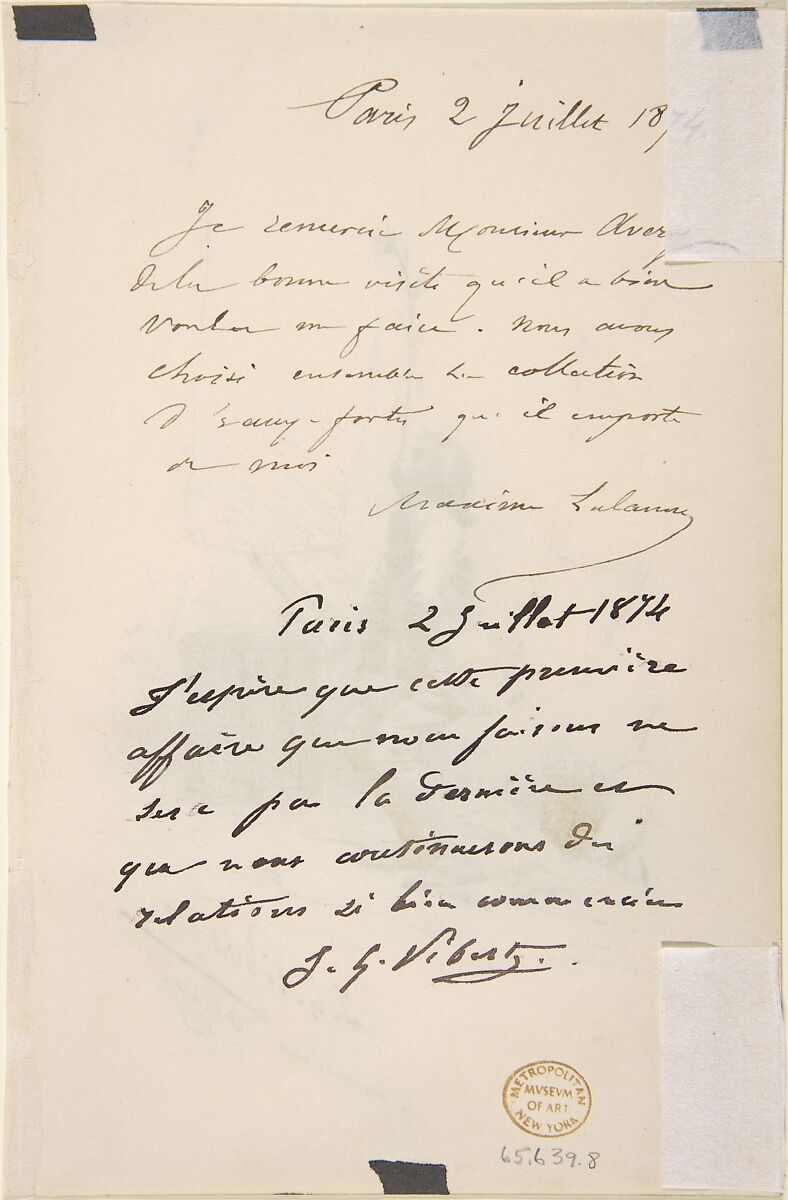 Paris 2 Juillet 1874.
Je remercie Monsieur Avery
de la bonne visite qu'il a bien
voulu me faire. Nous avons
choisi ensemble la collection
d'eaux-fortes qu'il emporte
de moi
Maxime Lalanne
Paris 2 Juillet 1874
J'espère que cette première
affaire que nous faisons ne
sera pas la dernière et
que nous continuerons des
relations si bien commencées
J. G. Vibert.
METROPOLITAN
MVSEVM
OF ART
NEW YORK
65.639.8